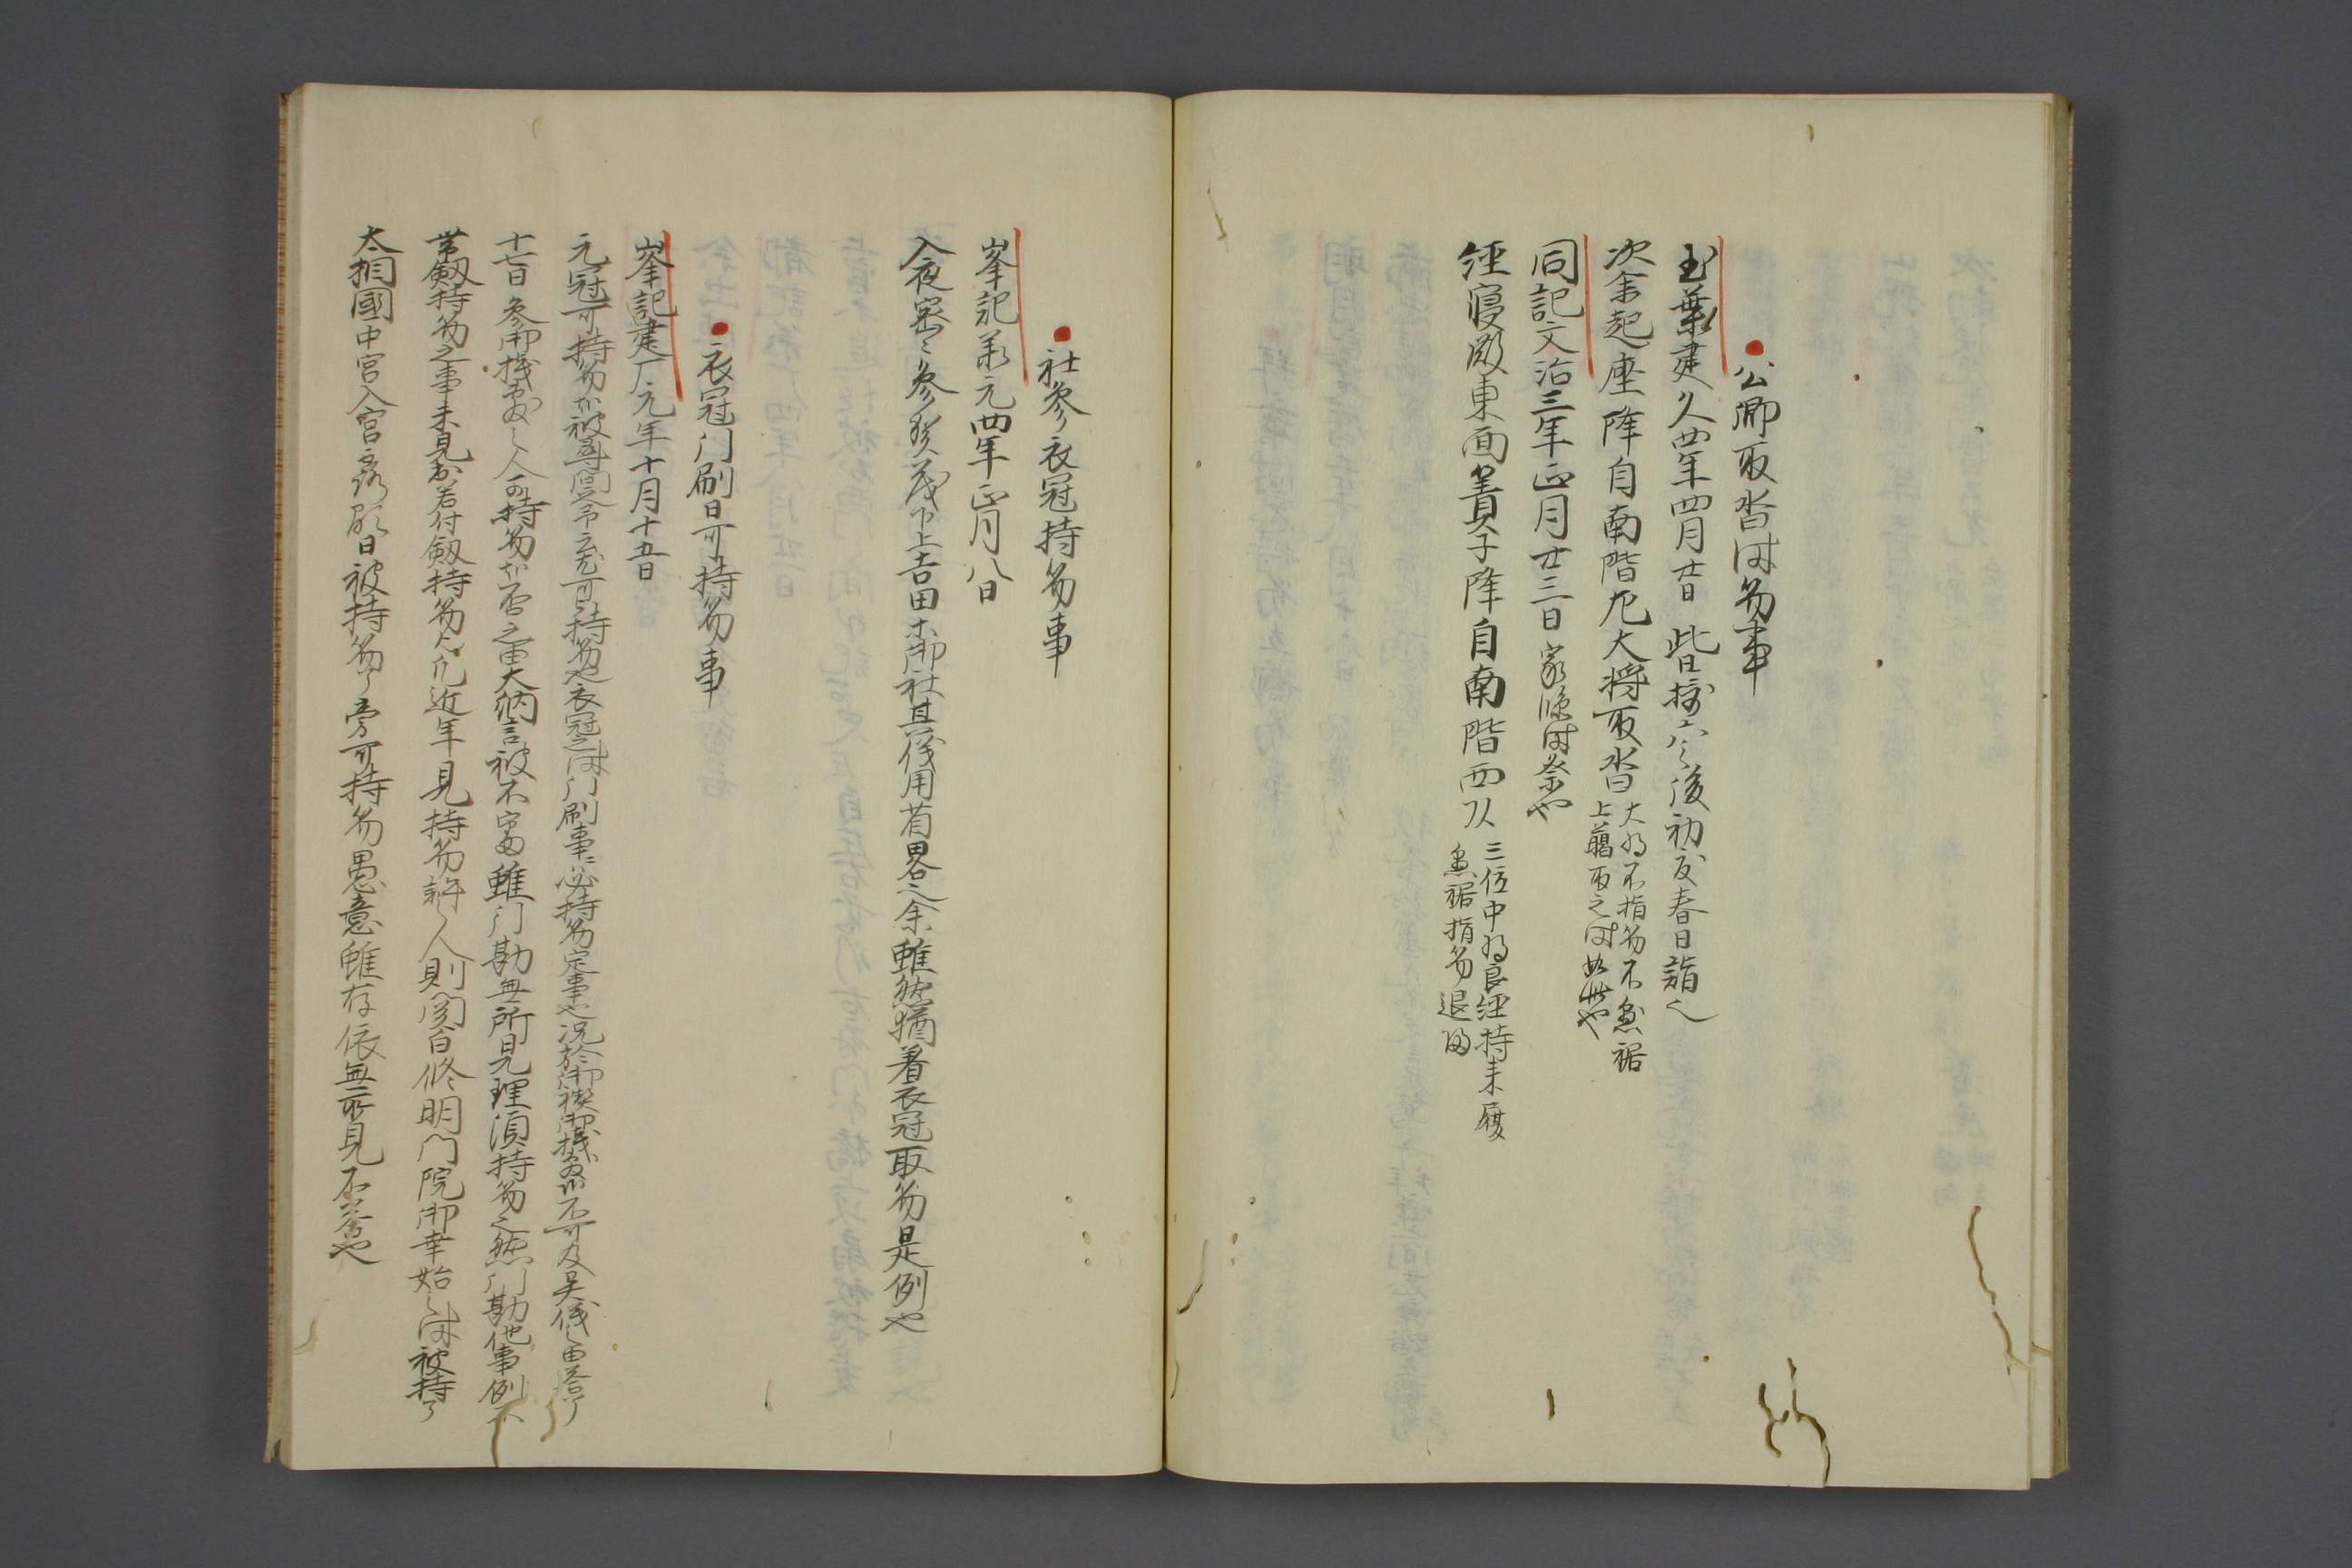 公卿取沓時笏事
玉葉建久四年四月廿日 此日後初度春日詣也
次余起座降自南階左大将取沓大将不指笏不懸裾
上臈取之時如此也
同記文治三年正月廿三日家除目時祭也
経寝殿東面簀子降自南階西以三位中将良経持来履
懸裾指笏退帰
社参衣冠持笏事
峯記承元四年正月八日
入夜密々参賀茂下上吉田等御社其儀用省略之余雖然猶着衣冠取笏是例也
衣冠門刷日可持笏事
峯記建广元年十月十五日
元冠可持笏哉被尋間令之尤可持笏也衣冠之時門刷事必持笏定事也況於御禊御棧敷哉不可及異儀之由答了
十七日参御棧敷之人可持笏哉否之由大納言被不審雖門勘無所見理須持笏之然門勘他事例不
帯剱持笏之事未見於若付剱持笏欤凡近年見持笏許之人則関白修明門院御幸始之時被持了
太相國中宮入宮露顕日被持笏了旁可持笏愚意雖存依無所見不答也